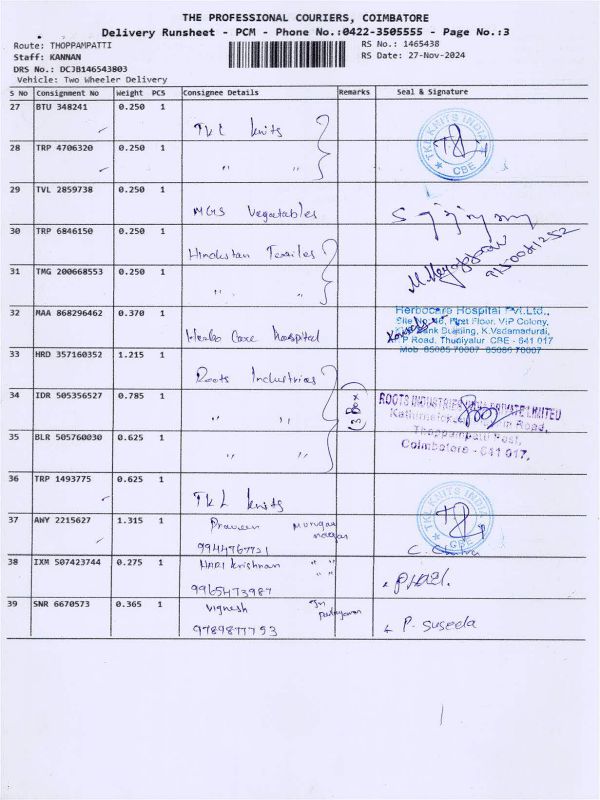 THE PROFESSIONAL COURIERS, COIMBATORE
Delivery Runsheet - PCM - Phone No.:0422-3505555 - Page No.:3
Route: THOPPAMPATTI
RS No.: 1465438
Staff: KANNAN
RS Date: 27-Nov-2024
DRS No.: DCJB146543803
Vehicle: Two Wheeler Delivery
S No Consignment No Weight PCS Consignee Details Remarks Seal & Signature
27 BTU 348241 0.250 1
TKL knits
TKL KNITS INDIA
CBE
28 TRP 4706320 0.250 1
" "
29 TVL 2859738 0.250 1
MGS Vegetables
30 TRP 6846150 0.250 1
Hindustan Textiles
31 TMG 200668553 0.250 1
" "
32 MAA 868296462 0.370 1
Herbo Care hospital
Herbocare Hospital Pvt.Ltd.,
Site No:46, First Floor, VIP Colony,
Bank Building, K.Vadamadurai,
P Road, Thudiyalur CBE - 641 017
Mob 85085 70007 85086 70007
33 HRD 357160352 1.215 1
Roots Industries
34 IDR 505356527 0.785 1
" "
(3 Box)
ROOTS INDUSTRIES INDIA PRIVATE LIMITED
Road,
Thoppampatti Post,
Coimbatore - 641 017.
35 BLR 505760030 0.625 1
" "
36 TRP 1493775 0.625 1
TKL knits
TKL KNITS INDIA
CBE
37 AWY 2215627 1.315 1
Praveen Murugan nagar
9944767721
C. Chitra
38 IXM 507423744 0.275 1
HARI krishnan " "
" "
9965473987
39 SNR 6670573 0.365 1
Vignesh
9789877753
P. Suseela